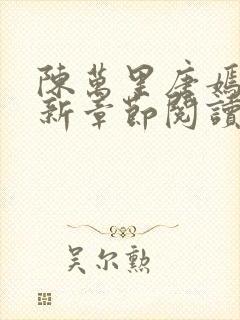 陳萬里唐嫣
新章節閱讀
吴尔勲